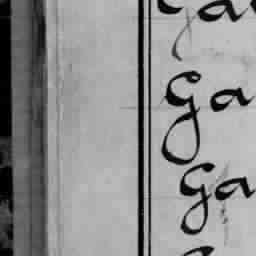 Ga
Ga
Ga